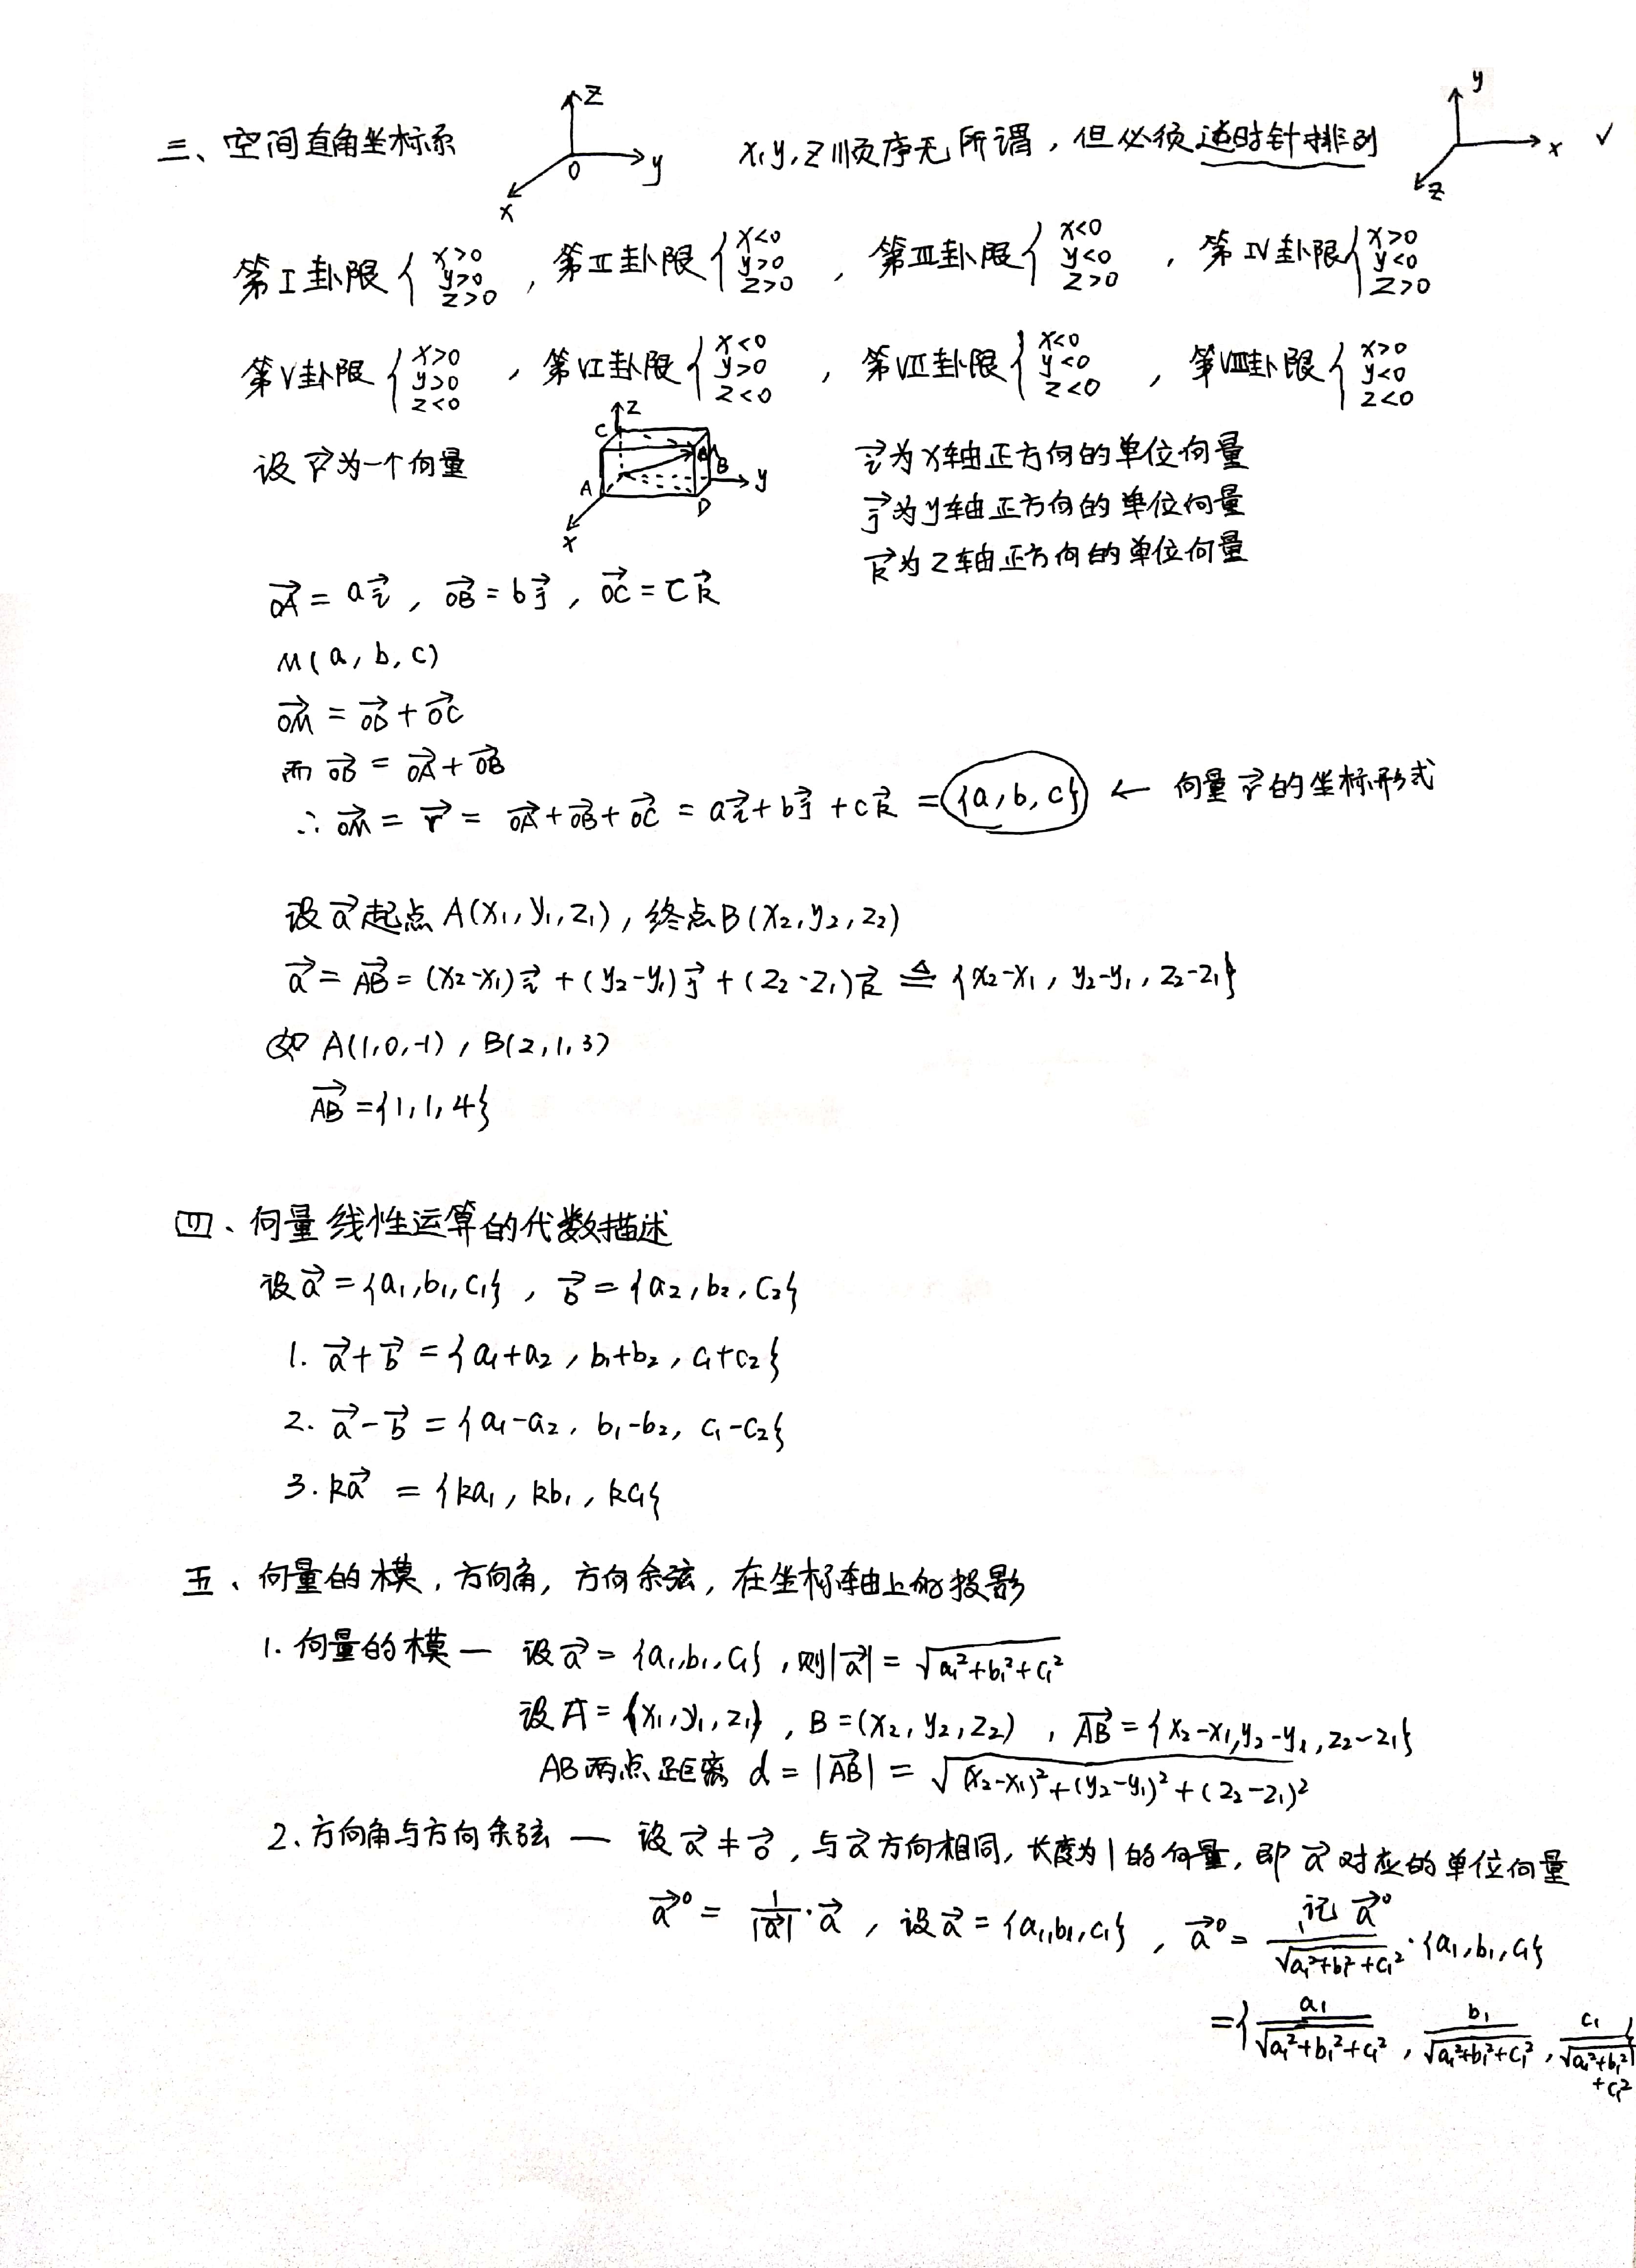 三、空间直角坐标系 z y x O x,y,z顺序无所谓,但必须逆时针排列 y x z ✓
第I卦限{x>0 y>0 z>0 , 第II卦限{x<0 y>0 z>0 , 第III卦限{x<0 y<0 z>0 , 第IV卦限{x>0 y<0 z>0
第V卦限{x>0 y>0 z<0 , 第VI卦限{x<0 y>0 z<0 , 第VII卦限{x<0 y<0 z<0 , 第VIII卦限{x>0 y<0 z<0
设r⃗为一个向量 z C A B D y x i⃗为x轴正方向的单位向量
j⃗为y轴正方向的单位向量
k⃗为z轴正方向的单位向量
OA⃗ = ai⃗ , OB⃗ = bj⃗ , OC⃗ = ck⃗
M(a, b, c)
OM⃗ = OD⃗ + OC⃗
而 OD⃗ = OA⃗ + OB⃗
∴ OM⃗ = r⃗ = OA⃗ + OB⃗ + OC⃗ = ai⃗ + bj⃗ + ck⃗ = {a, b, c} ← 向量r⃗的坐标形式
设a⃗起点A(x₁, y₁, z₁), 终点B(x₂, y₂, z₂)
a⃗ = AB⃗ = (x₂-x₁)i⃗ + (y₂-y₁)j⃗ + (z₂-z₁)k⃗ ≜ {x₂-x₁, y₂-y₁, z₂-z₁}
如 A(1,0,-1), B(2,1,3)
AB⃗ = {1,1,4}
四、向量线性运算的代数描述
设a⃗ = {a₁,b₁,c₁} , b⃗ = {a₂,b₂,c₂}
1. a⃗+b⃗ = {a₁+a₂, b₁+b₂, c₁+c₂}
2. a⃗-b⃗ = {a₁-a₂, b₁-b₂, c₁-c₂}
3. ka⃗ = {ka₁, kb₁, kc₁}
五、向量的模,方向角,方向余弦,在坐标轴上的投影
1. 向量的模 — 设a⃗ = {a₁,b₁,c₁} ,则|a⃗| = √(a₁²+b₁²+c₁²)
设A = (x₁,y₁,z₁) , B = (x₂,y₂,z₂) , AB⃗ = {x₂-x₁,y₂-y₁,z₂-z₁}
AB两点距离 d = |AB⃗| = √((x₂-x₁)²+(y₂-y₁)²+(z₂-z₁)²)
2、方向角与方向余弦 — 设a⃗ ≠ 0⃗ ,与a⃗方向相同,长度为1的向量,即a⃗对应的单位向量
记 a⃗⁰
a⃗⁰ = 1/|a⃗|·a⃗ , 设a⃗ = {a₁,b₁,c₁} , a⃗⁰ = 1/√(a₁²+b₁²+c₁²)·{a₁,b₁,c₁}
={a₁/√(a₁²+b₁²+c₁²), b₁/√(a₁²+b₁²+c₁²), c₁/√(a₁²+b₁²+c₁²)}